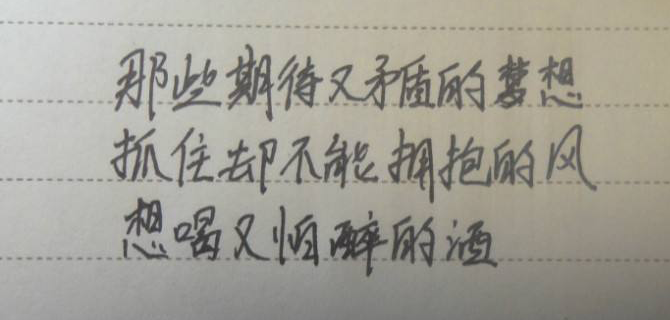 那些期待又矛盾的梦想
抓住却不能拥抱的风
想喝又怕醉的酒